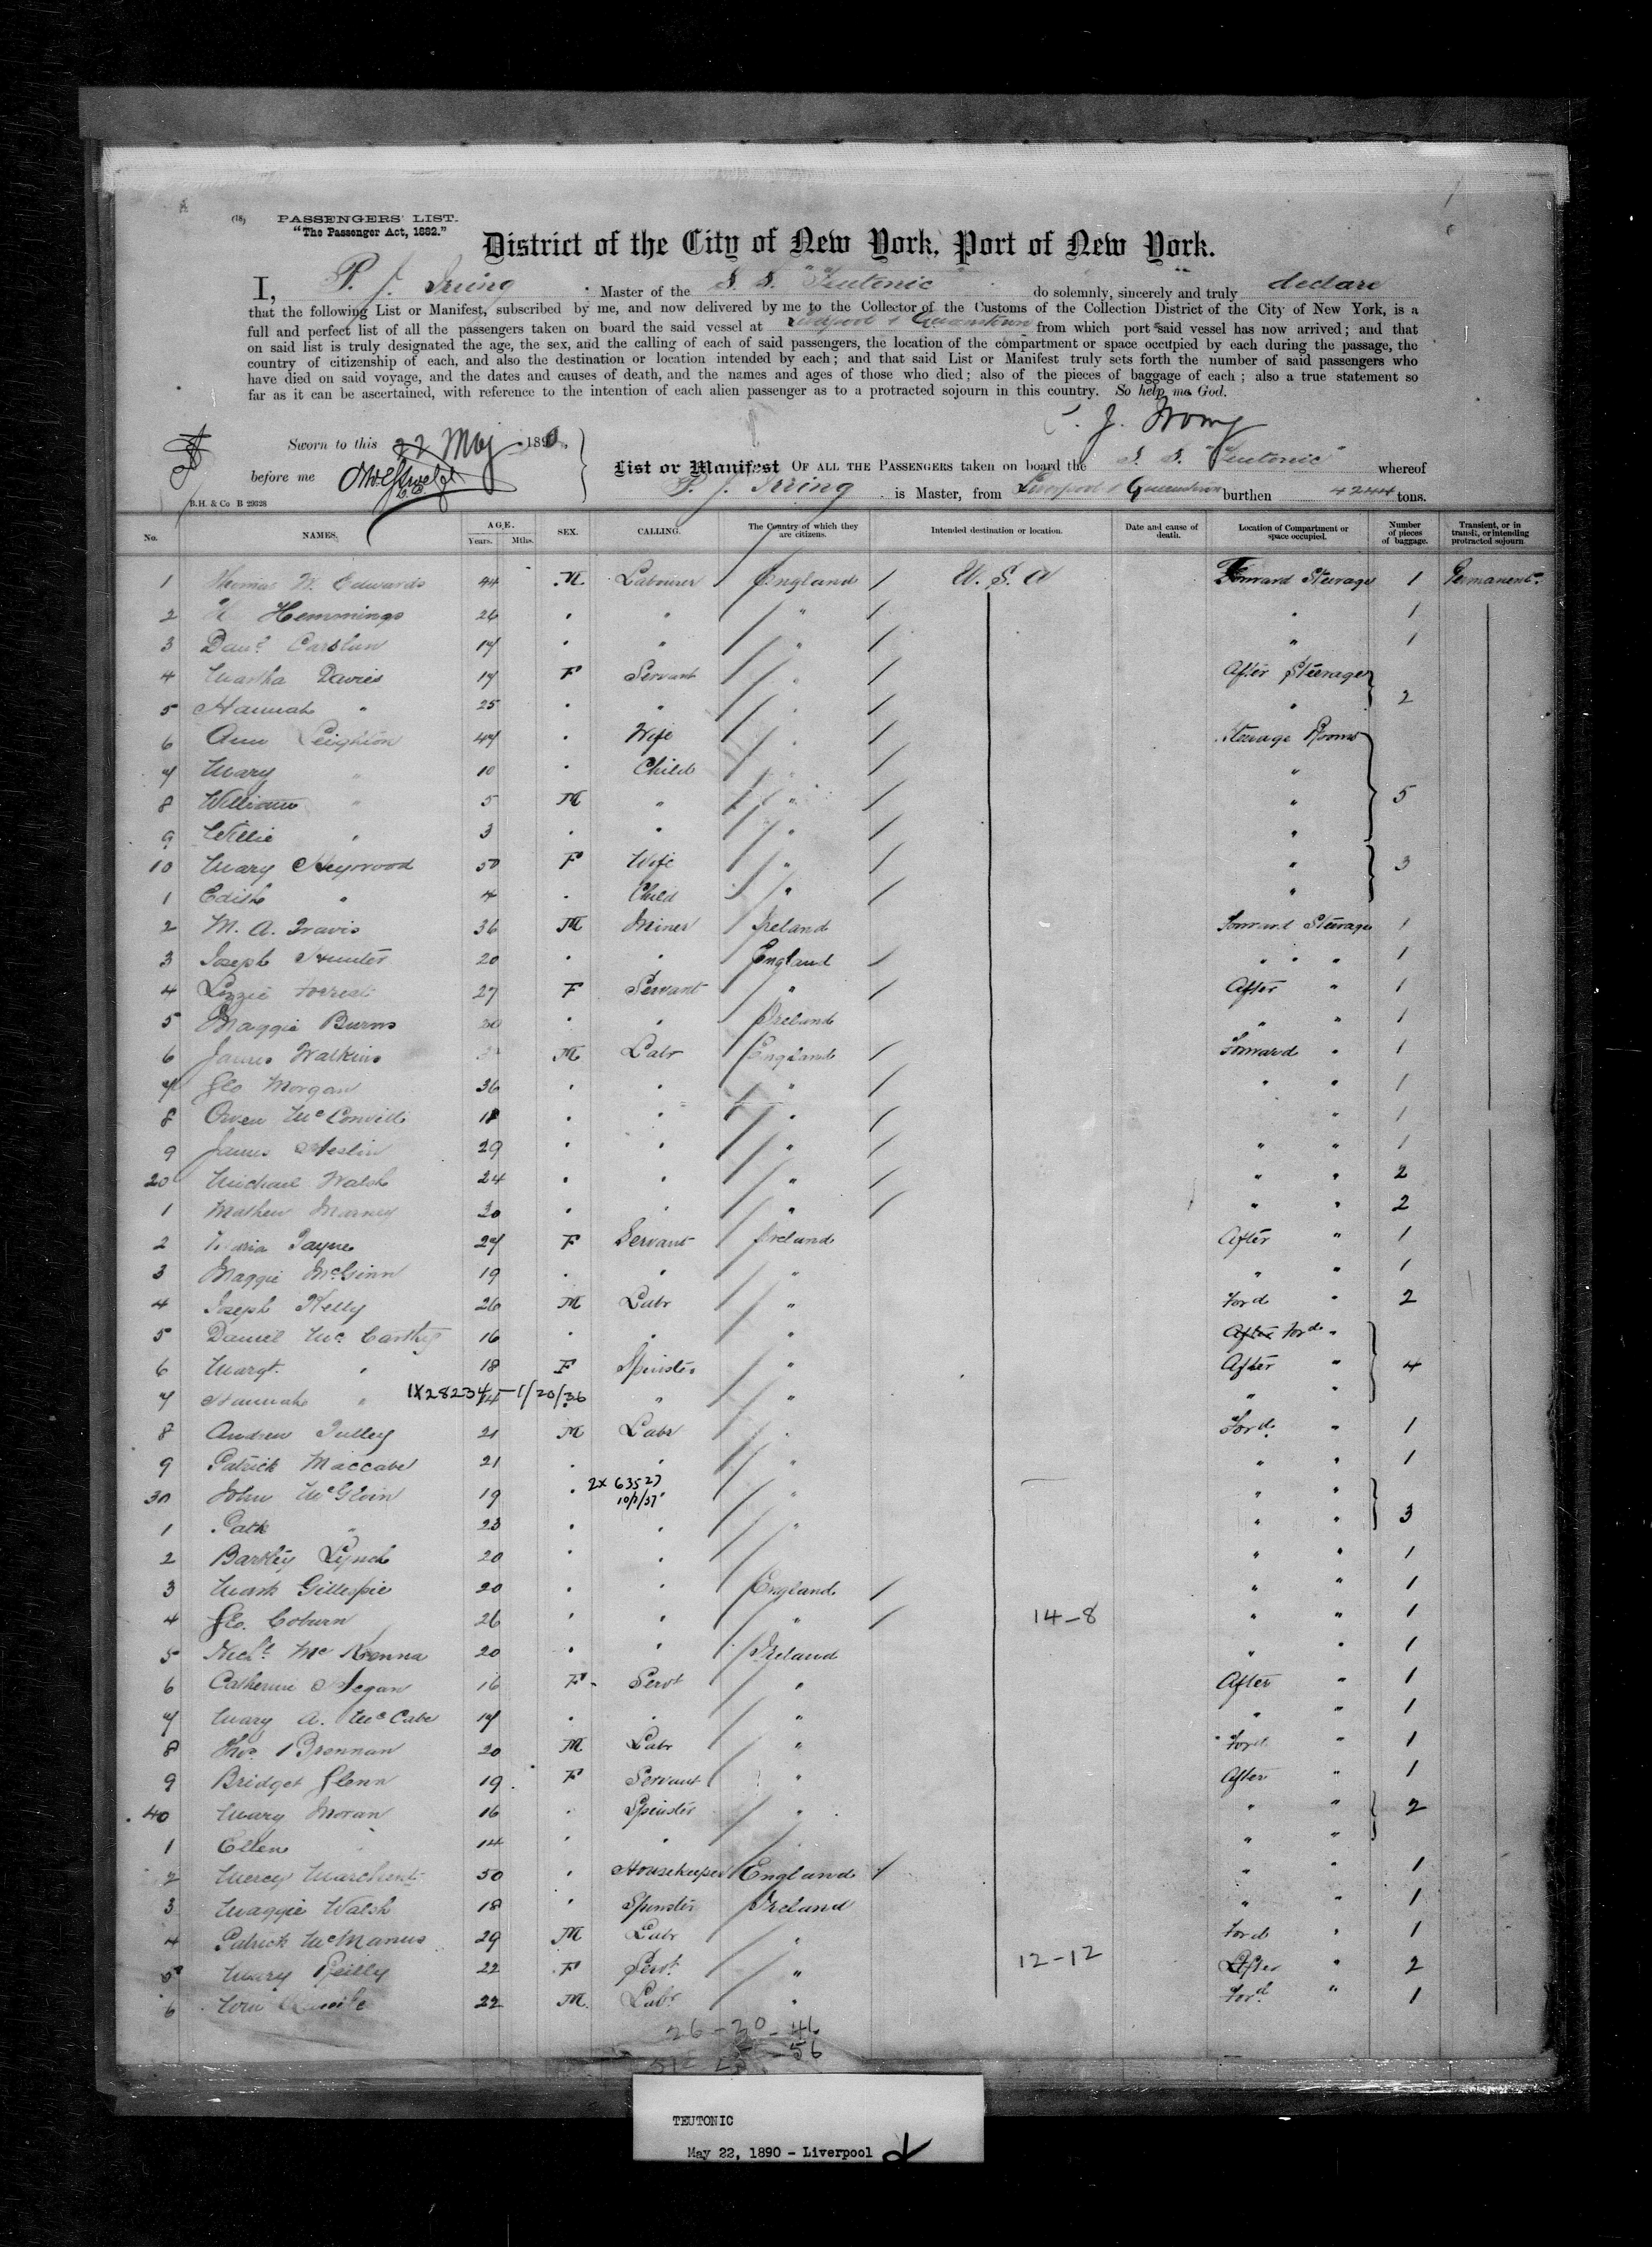 (18)
PASSENGERS' LIST.
"The Passenger Act, 1882."
District of the City of New York, Port of New York.
I, P. J. Irving Master of the S. S. "Teutonic" do solemnly, sincerely and truly declare
that the following List or Manifest, subscribed by me, and now delivered by me to the Collector of the Customs of the Collection District of the City of New York, is a
full and perfect list of all the passengers taken on board the said vessel at Liverpool & Queenstown from which port said vessel has now arrived; and that
on said list is truly designated the age, the sex, and the calling of each of said passengers, the location of the compartment or space occupied by each during the passage, the
country of citizenship of each, and also the destination or location intended by each; and that said List or Manifest truly sets forth the number of said passengers who
have died on said voyage, and the dates and causes of death, and the names and ages of those who died; also of the pieces of baggage of each; also a true statement so
far as it can be ascertained, with reference to the intention of each alien passenger as to a protracted sojourn in this country. So help me God.
P. J. Irving
Sworn to this 22 May 1890,
before me
List or Manifest OF ALL THE PASSENGERS taken on board the S. S. "Teutonic" whereof
P. J. Irving is Master, from Liverpool & Queenstown burthen 4244 tons.
B.H. & Co B 29328
No. NAMES. AGE. Years. Mths. SEX. CALLING. The Country of which they are citizens. Intended destination or location. Date and cause of death. Location of Compartment or space occupied. Number of pieces of baggage. Transient, or in transit, or intending protracted sojourn
1 Thomas W. Edwards 44 M Labourer England U. S. A Forward Steerage 1 Permanent
2 Hemmings 26 " " " " 1
3 Danl Carolan 17 " " " " 1
4 Martha Davies 17 F Servant " After Steerage
5 Hannah " 25 " " " " 2
6 Ann Leighton 47 " Wife " Steerage Rooms
7 Mary " 10 " Child " "
8 William " 5 M " " " 5
9 Willie " 3 " " " "
10 Mary Heywood 50 F Wife " " 3
1 Edith " 4 " Child " "
2 M. A. Travis 36 M Miner Ireland Forward Steerage 1
3 Joseph Hunter 20 " " England " " 1
4 Lizzie Forrest 27 F Servant " After " 1
5 Maggie Burns 20 " " Ireland " " 1
6 James Watkins M Labr England Forward " 1
7 Geo Morgan 36 " " " " " 1
8 Owen McConville 18 " " " " 1
9 James 29 " " " " " 1
20 Michael Walsh 24 " " " " " 2
1 Mathew Marney 30 " " " " " 2
2 Maria Jayne 27 F Servant Ireland After " 1
3 Maggie McGinn 19 " " " " " 1
4 Joseph Kelly 26 M Labr " Ford " 2
5 Daniel McCarthy 16 " " " After Ford "
6 Margt. " 18 F Spinster " After " 4
7 Hannah " 1X28234-1/20/36 14 " " " " "
8 Andrew Tulley 21 M Labr " Ford " 1
9 Patrick Maccabe 21 " " " " " 1
30 John McGlvin 19 " 2x 63527 10/1/37 " " "
1 Patk " 23 " " " " " 3
2 Barkley Lynch 20 " " " " 1
3 Mark Gillespie 20 " " England " " 1
4 Geo. Coburn 26 " " " 14-8 " " 1
5 Michl McKenna 20 " " Ireland " " 1
6 Catherine 16 F Servt " After " 1
7 Mary A. McCabe 17 " " " " " 1
8 Thos Brennan 20 M Labr " Ford " 1
9 Bridget Glenn 19 F Servant " After " 1
40 Mary Moran 16 " Spinster " " " 2
1 Ellen " 14 " " " " "
2 Mercy Marchent 50 " Housekeeper England " 1
3 Maggie Walsh 18 " Spinster Ireland " " 1
4 Patrick McManus 29 M Labr " Ford " 1
5 Mary Reilly 22 F Servt " 12-12 After " 2
6 Wm 22 M Labr " Ford " 1
26-20-46
56
TEUTONIC
May 22, 1890 - Liverpool